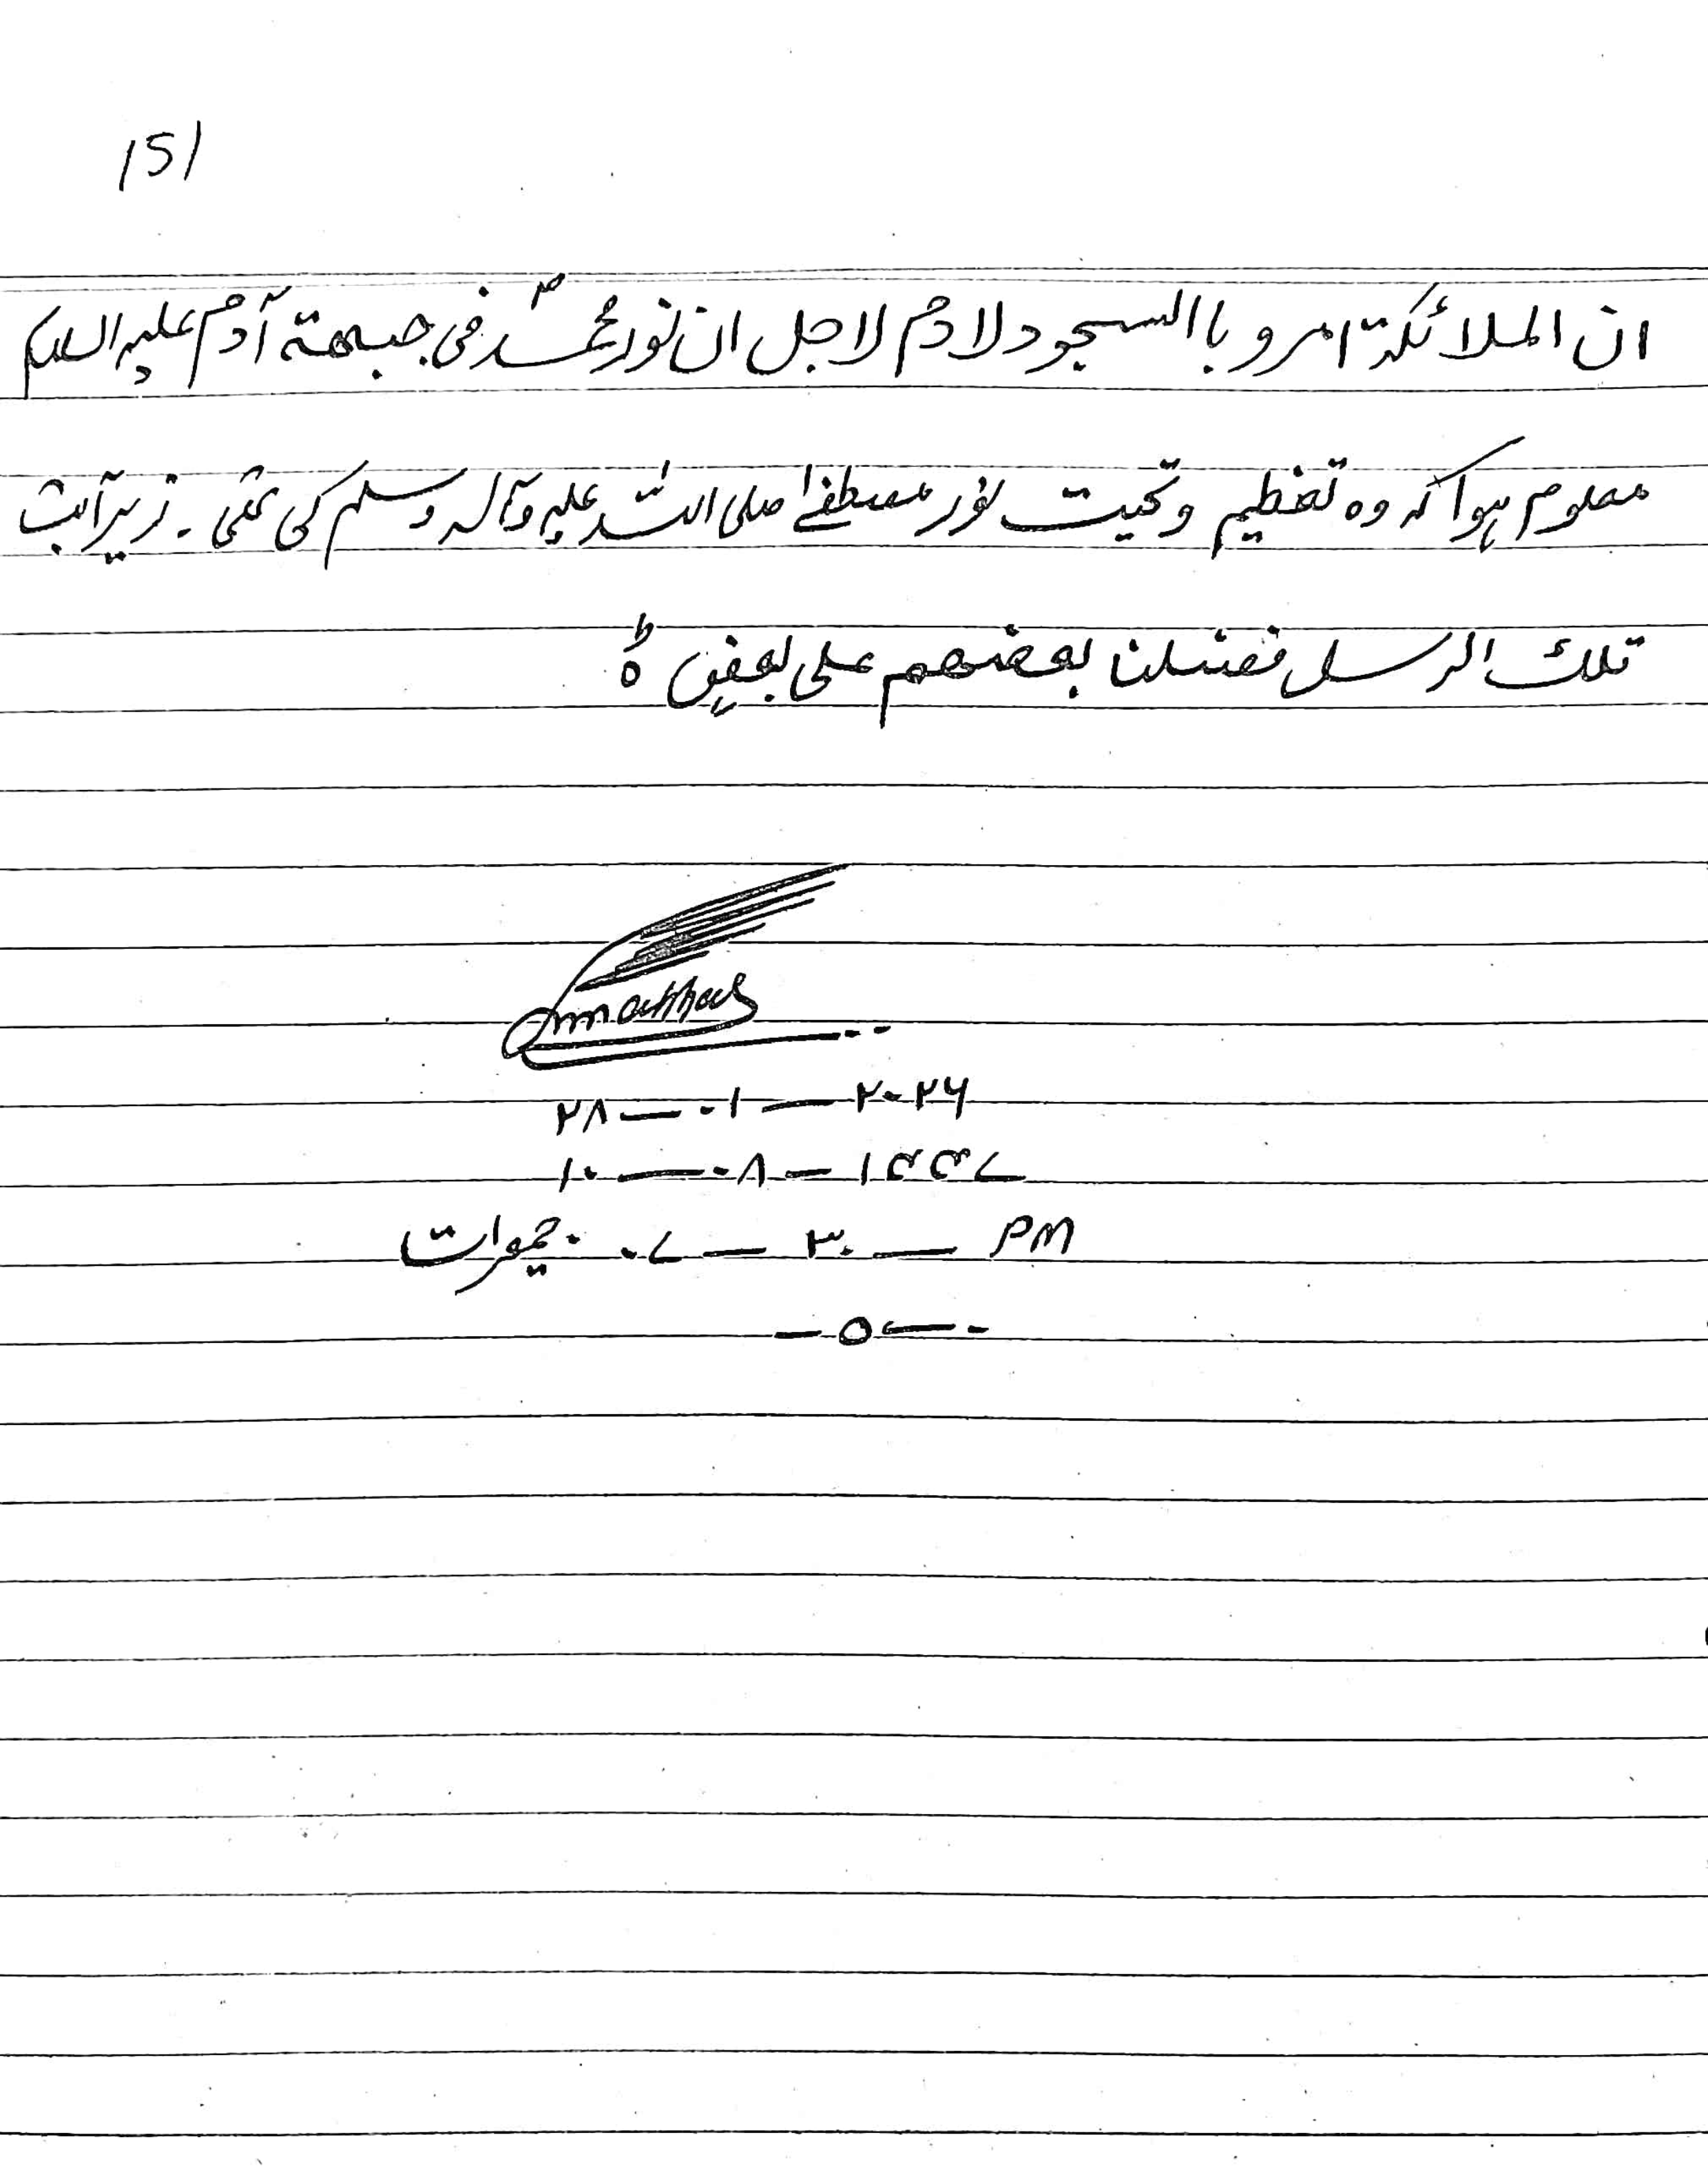 151
ان الملائکۃ امرو باالسجود لادم لاجل ان نور محمدؐ فی جبھة آدم علیہ السلام
معلوم ہوا کہ وہ تعظیم و تحیت نور مصطفےٰ صلی اللہ علیہ وآلہ وسلم کی تھی ۔ زیر آیت
تلک الرسل فضلنا بعضھم علی بعضٍ ط
۲۸ — ۰۱ — ۲۰۲۶
۱۰ — ۰۸ — ۱۴۴۷
جمعرات ۰۷ — ۳۰ — PM
— o — -